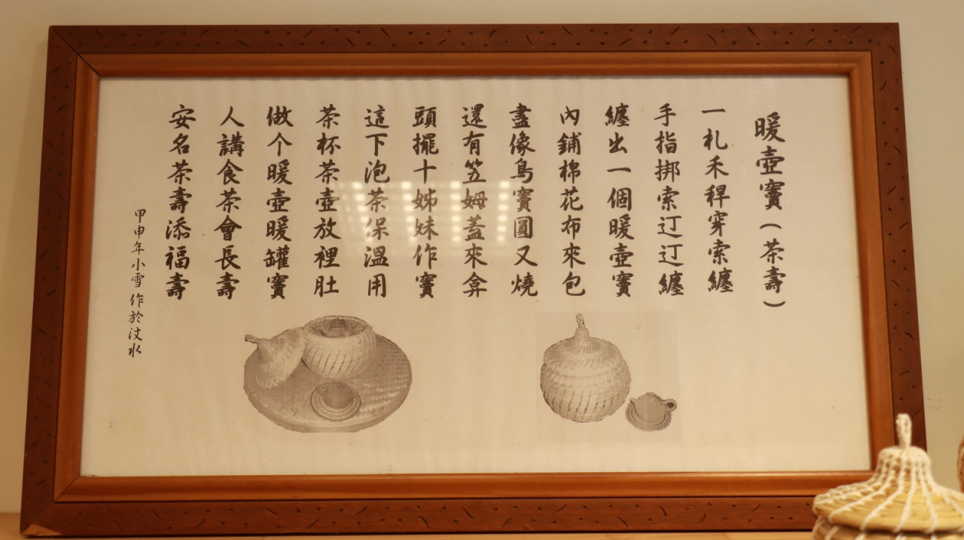 暖壺寶(茶壽)
一札禾稈穿索纏
手指挷索辺辺纏
纏出一個暖壺寶
內鋪棉花布來包
盡像鳥寶圓又燒
還有笠姆蓋來弇
頭擺十姊妹作寶
這下泡茶保溫用
茶杯茶壺放裡肚
做个暖壺暖罐寶
人講食茶會長壽
安名茶壽添福壽
甲申年小雪作於汶水